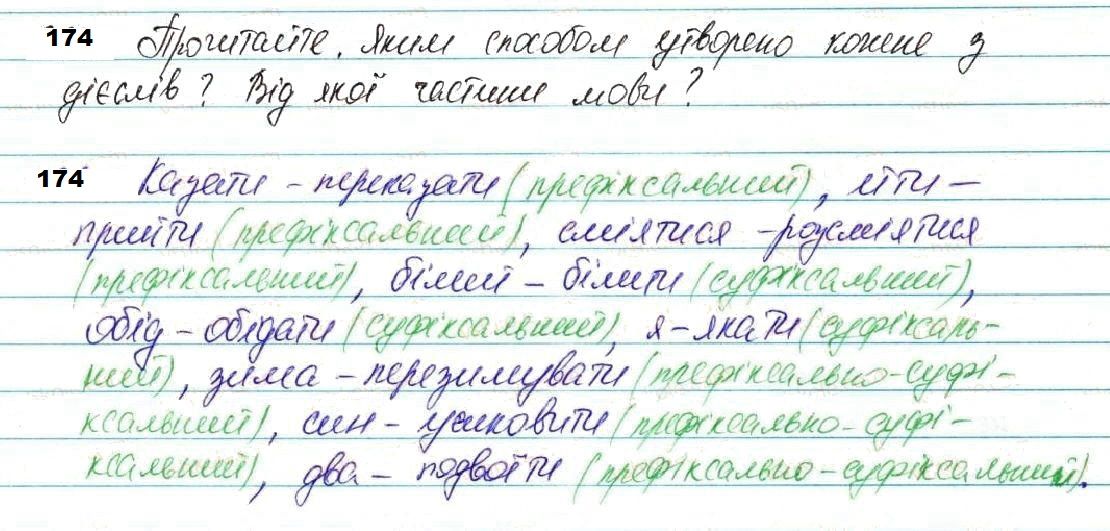 174 Прочитайте. Яким способом утворено кожне з
дієслів? Від якої частини мови?
174 Казати – переказати (префіксальний), йти –
прийти (префіксальний), сміятися – розсміятися
(префіксальний), білий – білити (суфіксальний),
обід – обідати (суфіксальний), я – якати (суфіксаль-
ний), зима – перезимувати (префіксально-суфі-
ксальний), син – усиновити (префіксально-суфі-
ксальний), два – подвоїти (префіксально-суфіксальний).